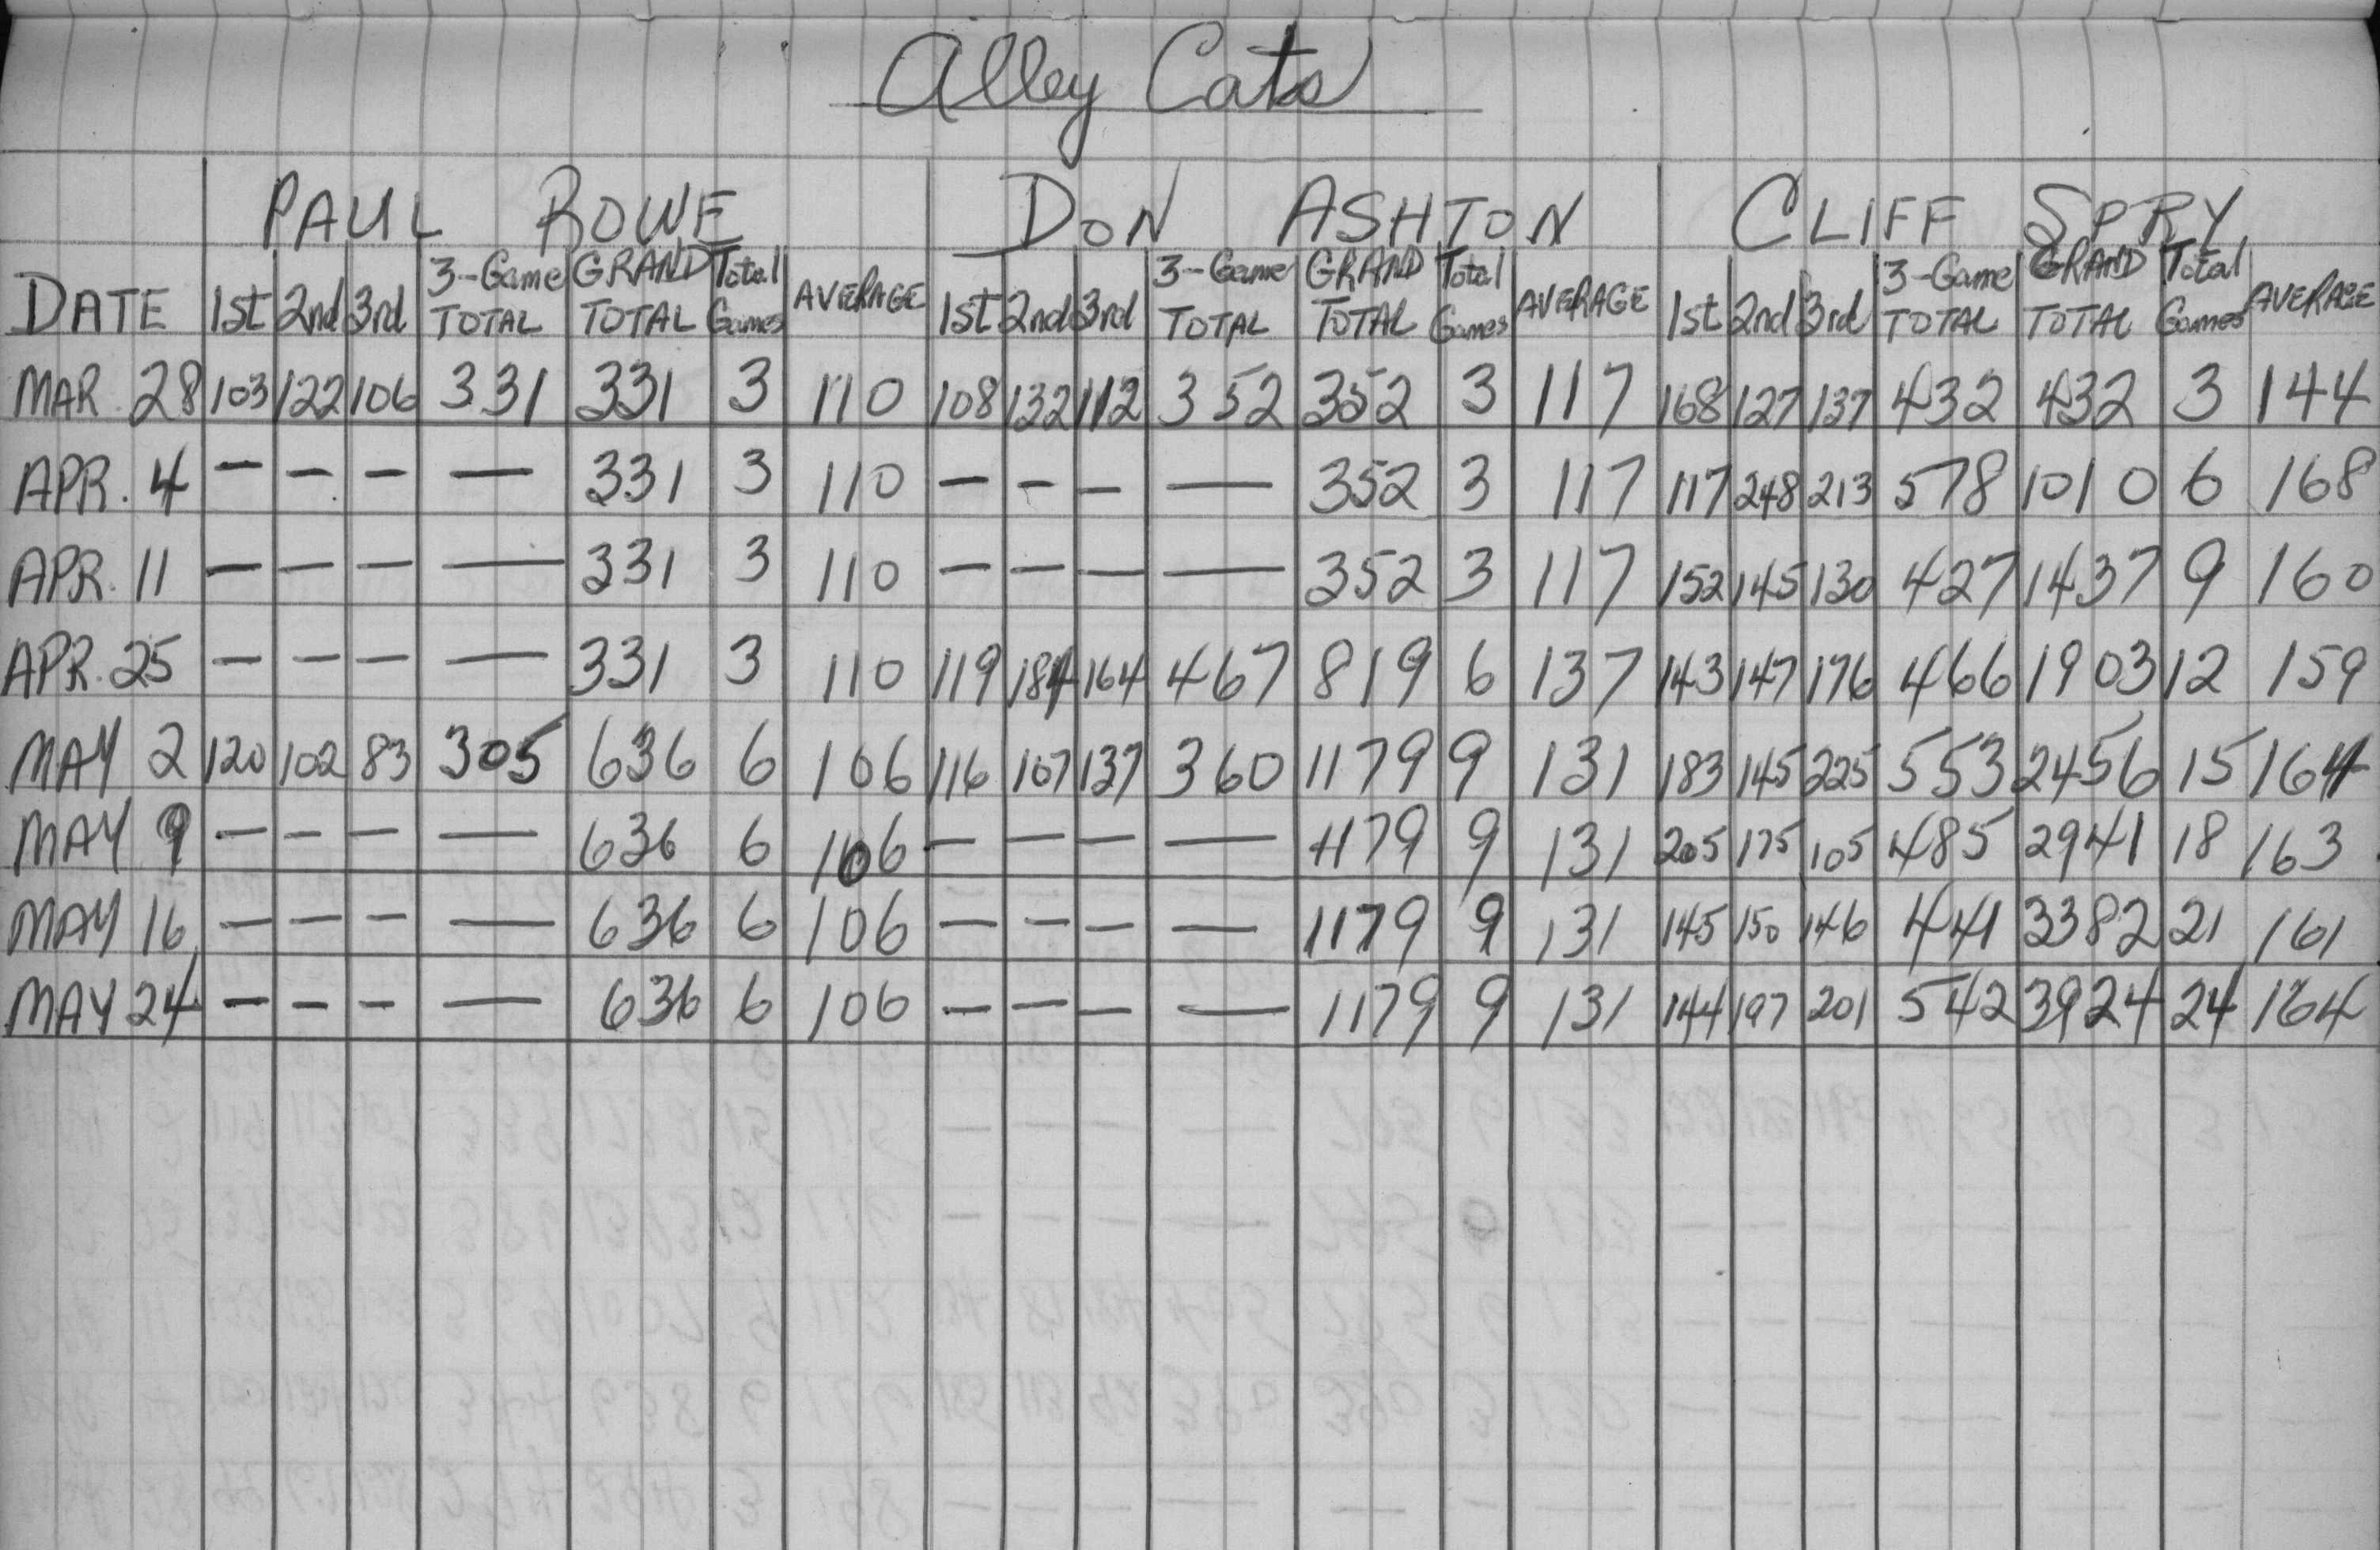 Alley Cats
PAUL ROWE DON ASHTON CLIFF SPRY
DATE 1st 2nd 3rd 3-Game TOTAL GRAND TOTAL Total Games AVERAGE 1st 2nd 3rd 3-Game TOTAL GRAND TOTAL Total Games AVERAGE 1st 2nd 3rd 3-Game TOTAL GRAND TOTAL Total Games AVERAGE
MAR. 28 103 122 106 331 331 3 110 108 132 112 352 352 3 117 168 127 137 432 432 3 144
APR. 4 — — — — 331 3 110 — — — — 352 3 117 117 248 213 578 1010 6 168
APR. 11 — — — — 331 3 110 — — — — 352 3 117 152 145 130 427 1437 9 160
APR. 25 — — — — 331 3 110 119 184 164 467 819 6 137 143 147 176 466 1903 12 159
MAY 2 120 102 83 305 636 6 106 116 107 137 360 1179 9 131 183 145 225 553 2456 15 164
MAY 9 — — — — 636 6 106 — — — — 1179 9 131 205 175 105 485 2941 18 163
MAY 16 — — — — 636 6 106 — — — — 1179 9 131 145 150 146 441 3382 21 161
MAY 24 — — — — 636 6 106 — — — — 1179 9 131 144 197 201 542 3924 24 164